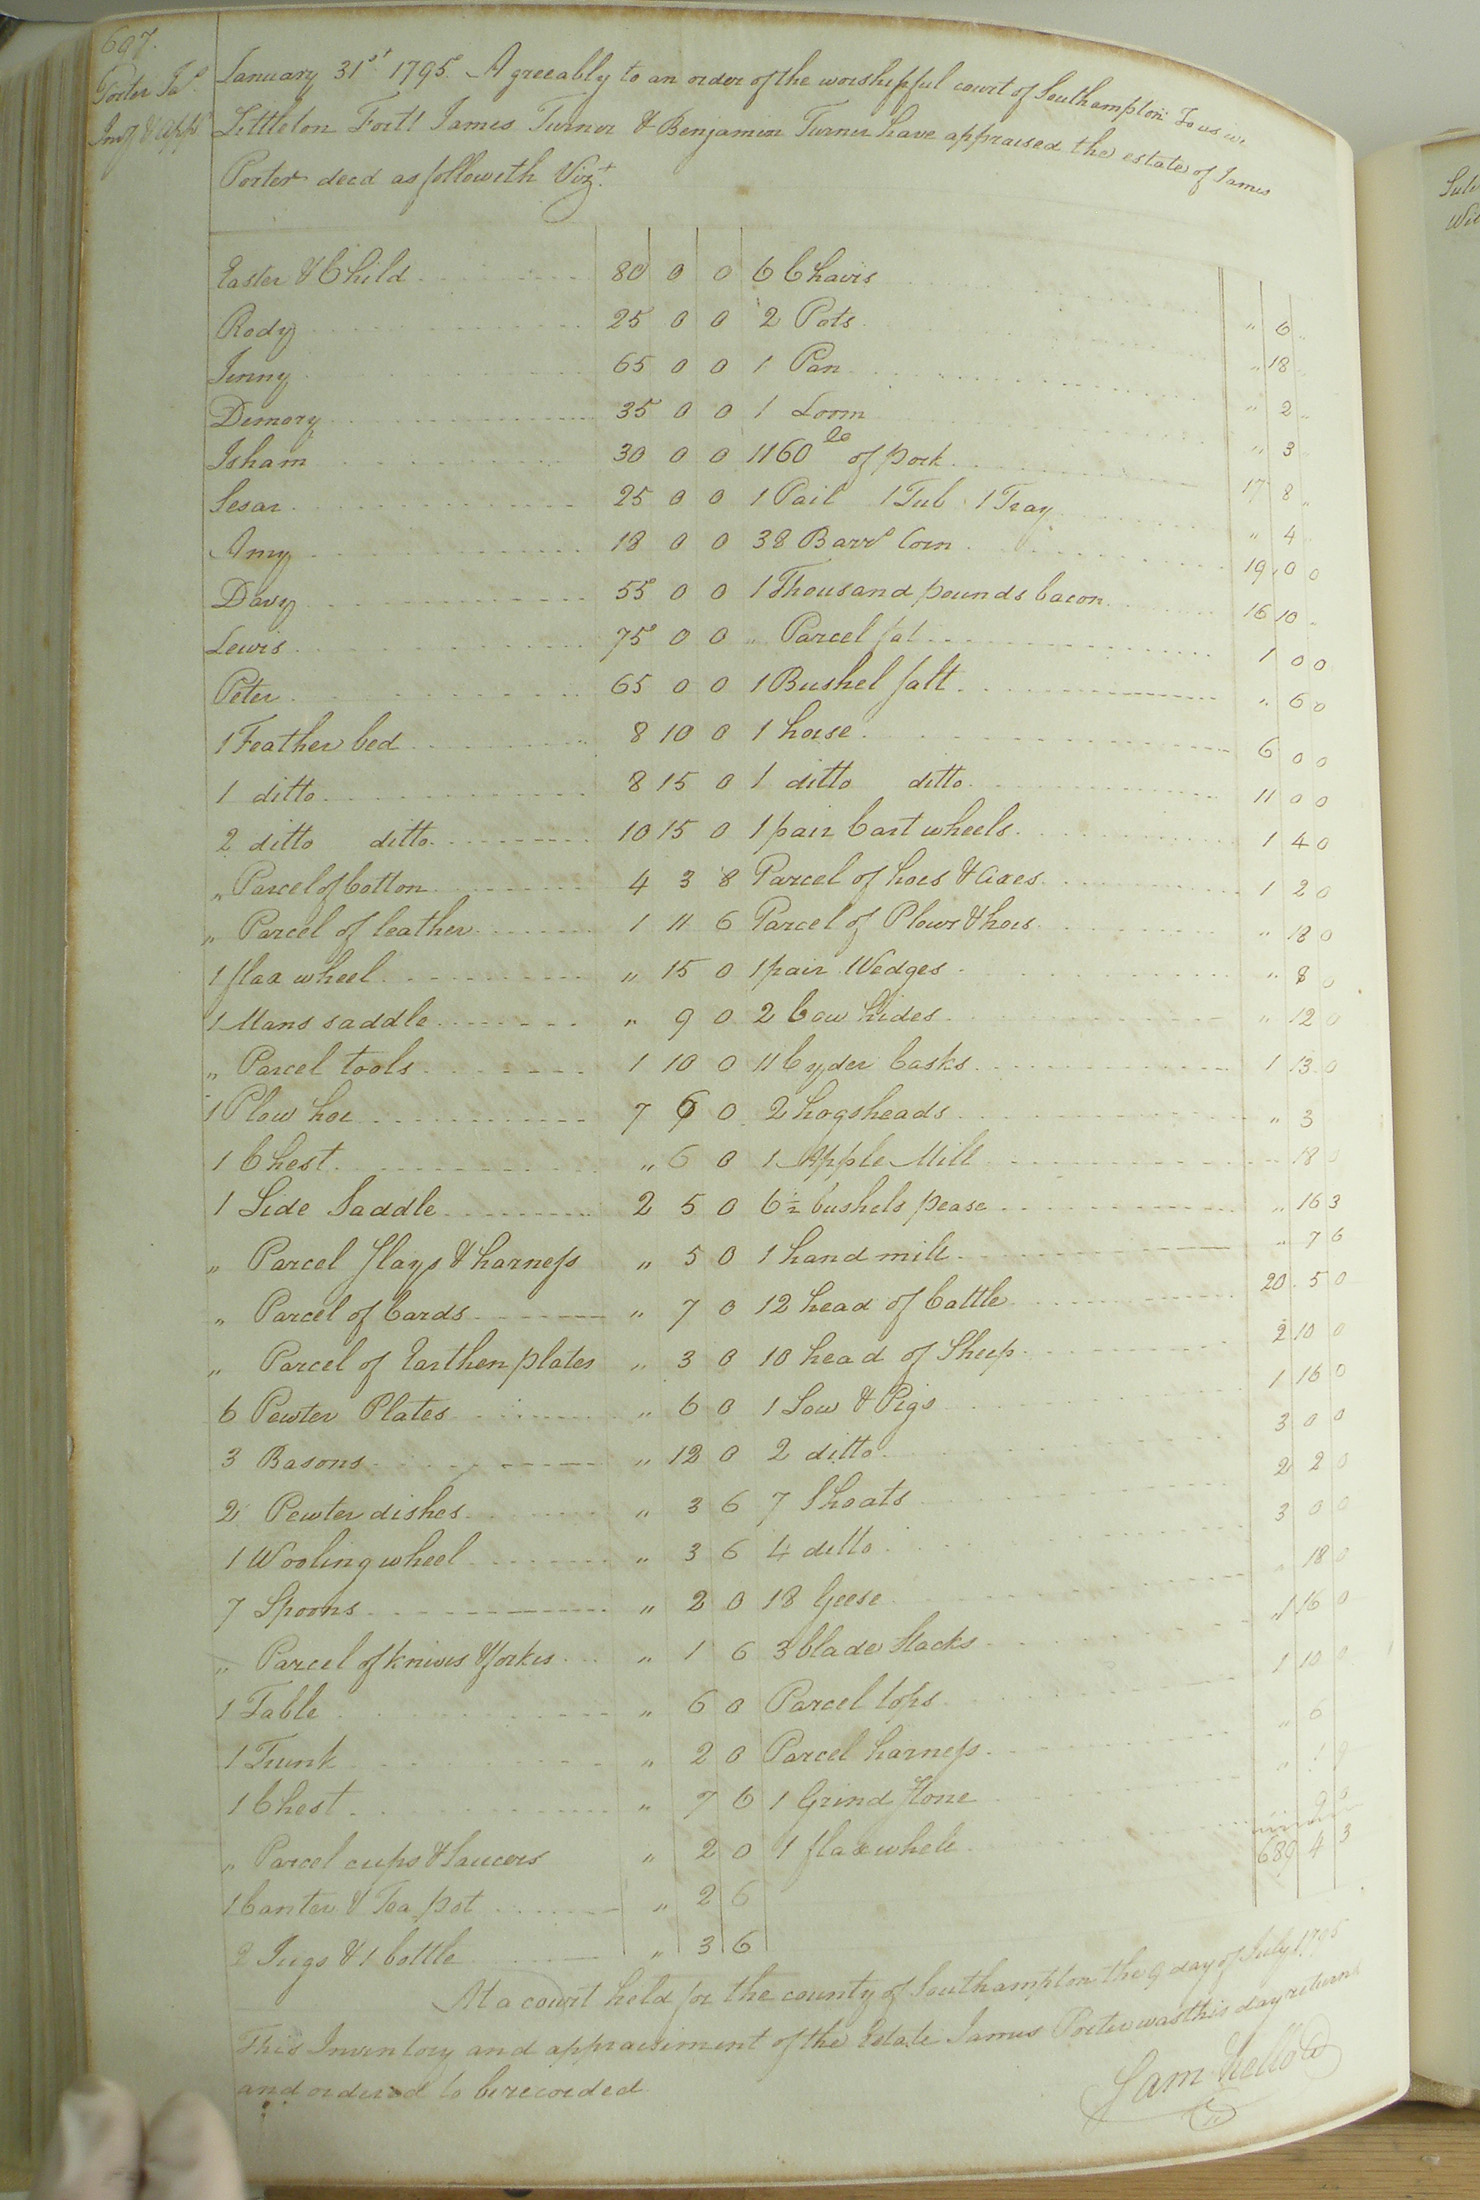 697.
Porter Jas
Inv & Appt
January 31st 1795. Agreeably to an order of the worshipful court of Southampton To us we
Littleton Fort James Turner & Benjamin Turner have appraised the estate of James
Porter decd as followeth Vizt.
Easter & Child 80 0 0 6 Chairs " 6 "
Rody 25 0 0 2 Pots " 18 "
Jenny 65 0 0 1 Pan " 2 "
Demory 35 0 0 1 Loom " 3
Isham 30 0 0 1160 lb of pork 17 8 "
Sesar 25 0 0 1 Pail 1 Tub 1 Tray " 4
Amy 18 0 0 38 Barrs Corn 19 0 0
Davy 55 0 0 1 Thousand pounds bacon 16 10
Lewis 75 0 0 " Parcel fat 1 0 0
Peter 65 0 0 1 Bushel salt " 6 0
1 Feather bed 8 10 0 1 horse 6 0 0
1 ditto 8 15 0 1 ditto ditto 11 0 0
2 ditto ditto 10 15 0 1 pair Cart wheels 1 4 0
" Parcel of Cotton 4 3 8 Parcel of hoes & Axes 1 2 0
" Parcel of leather 1 11 6 Parcel of Plows & hoes " 18 0
1 flax wheel " 15 0 1 pair Wedges " 8 0
1 Mans saddle " 9 0 2 Cow hides " 12 0
" Parcel tools 1 10 0 11 Cyder Casks 1 13 0
1 Plow hoe 7 6 0 2 hogsheads " 3
1 Chest " 6 0 1 Apple Mill 18 0
1 Side Saddle 2 5 0 6½ bushels pease " 16 3
" Parcel Slays & harness " 5 0 1 hand mill " 7 6
" Parcel of Cards " 7 0 12 head of Cattle 20 5 0
" Parcel of Earthen plates " 3 0 10 head of Sheep 2 10 0
6 Pewter Plates " 6 0 1 Sow & Pigs 1 16 0
3 Basons " 12 0 2 ditto 3 0 0
2 Pewter dishes " 3 6 7 Shoats 2 2 0
1 Wooling wheel " 3 6 4 ditto 3 0 0
7 Spoons " 2 0 18 Geese " 18 0
" Parcel of knives & forkes " 1 6 3 blade Stacks 1 16 0
1 Table " 6 0 Parcel tops 1 10 0
1 Trunk " 2 0 Parcel harness " 6
1 Chest " 7 6 1 Grind Stone
" Parcel cups & saucers " 2 0 1 flax wheel 9
1 Canter & Tea pot " 2 6 689 4 3
2 Jugs & 1 bottle " 3 6
At a court held for the county of Southampton the 9 day of July 1795
This Inventory and appraisiment of the Estate James Porter was this day returnd
and ordered to be recorded
Sam Kello